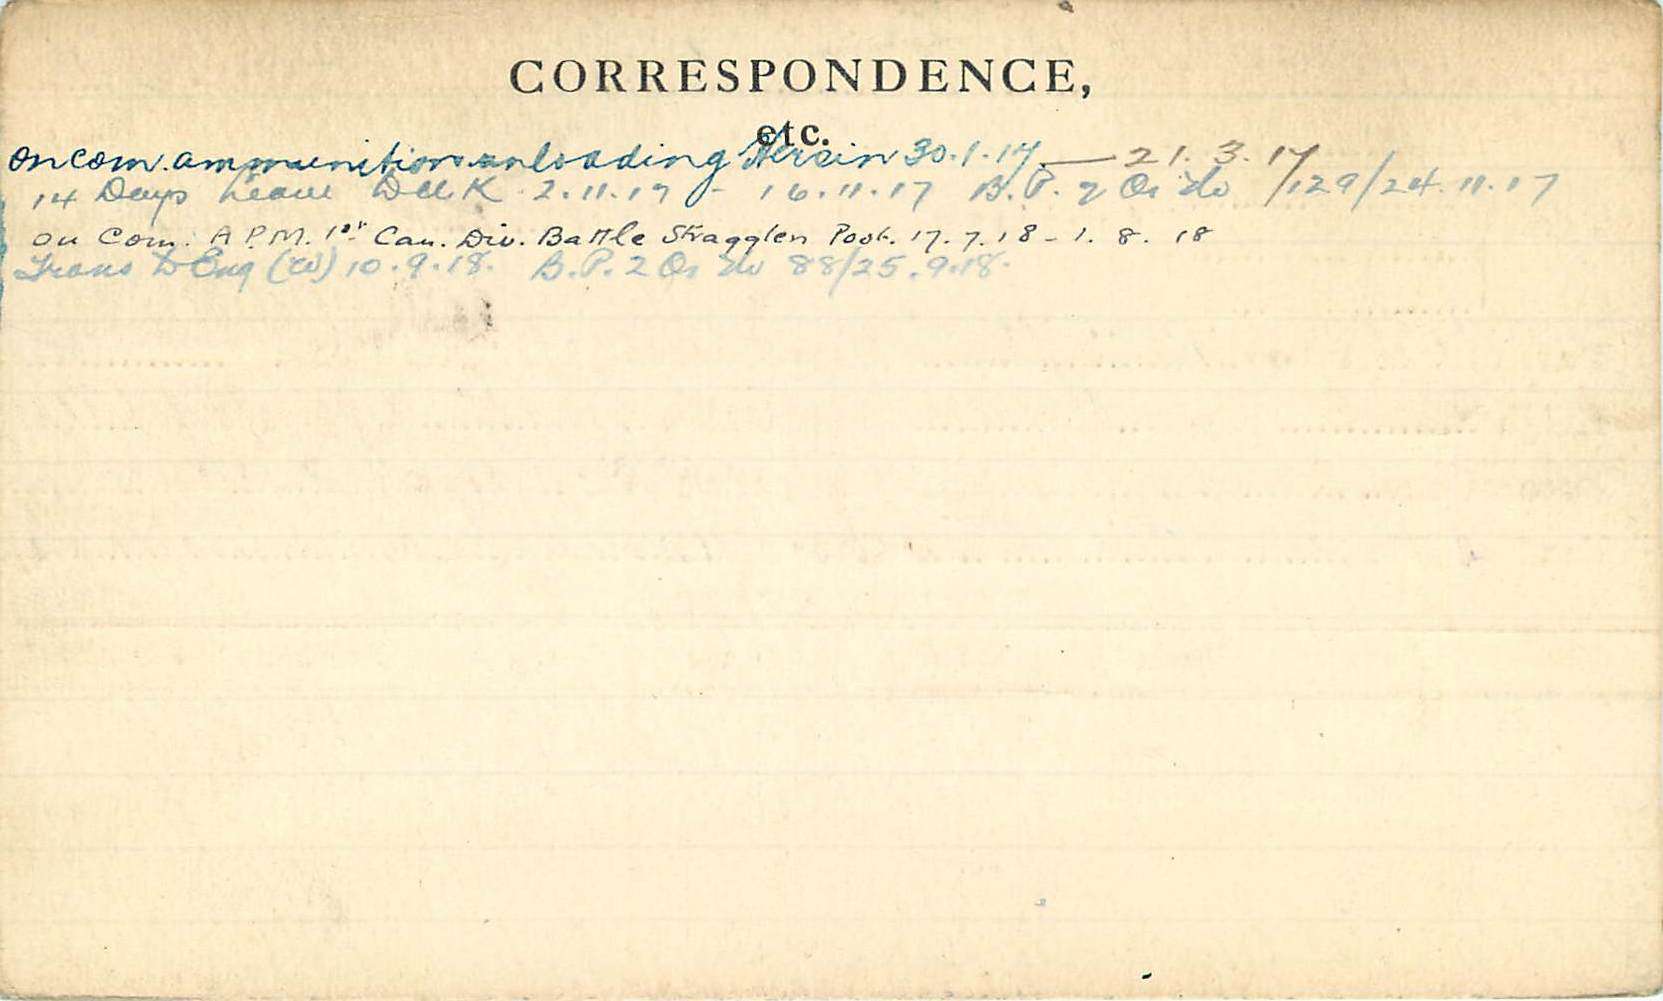 CORRESPONDENCE,
etc.
On com. ammunition unloading Hersin 30.1.17 — 21.3.17
14 Days Leave to U.K. 2.11.17 - 16.11.17 B.P. 2 Or do /129/24.11.17
on Com. A.P.M. 1st Can. Div. Battle Straggler Post. 17.7.18 - 1.8.18
Trans to Eng (W) 10.9.18. B.P. 2 Or do 88/25.9.18.